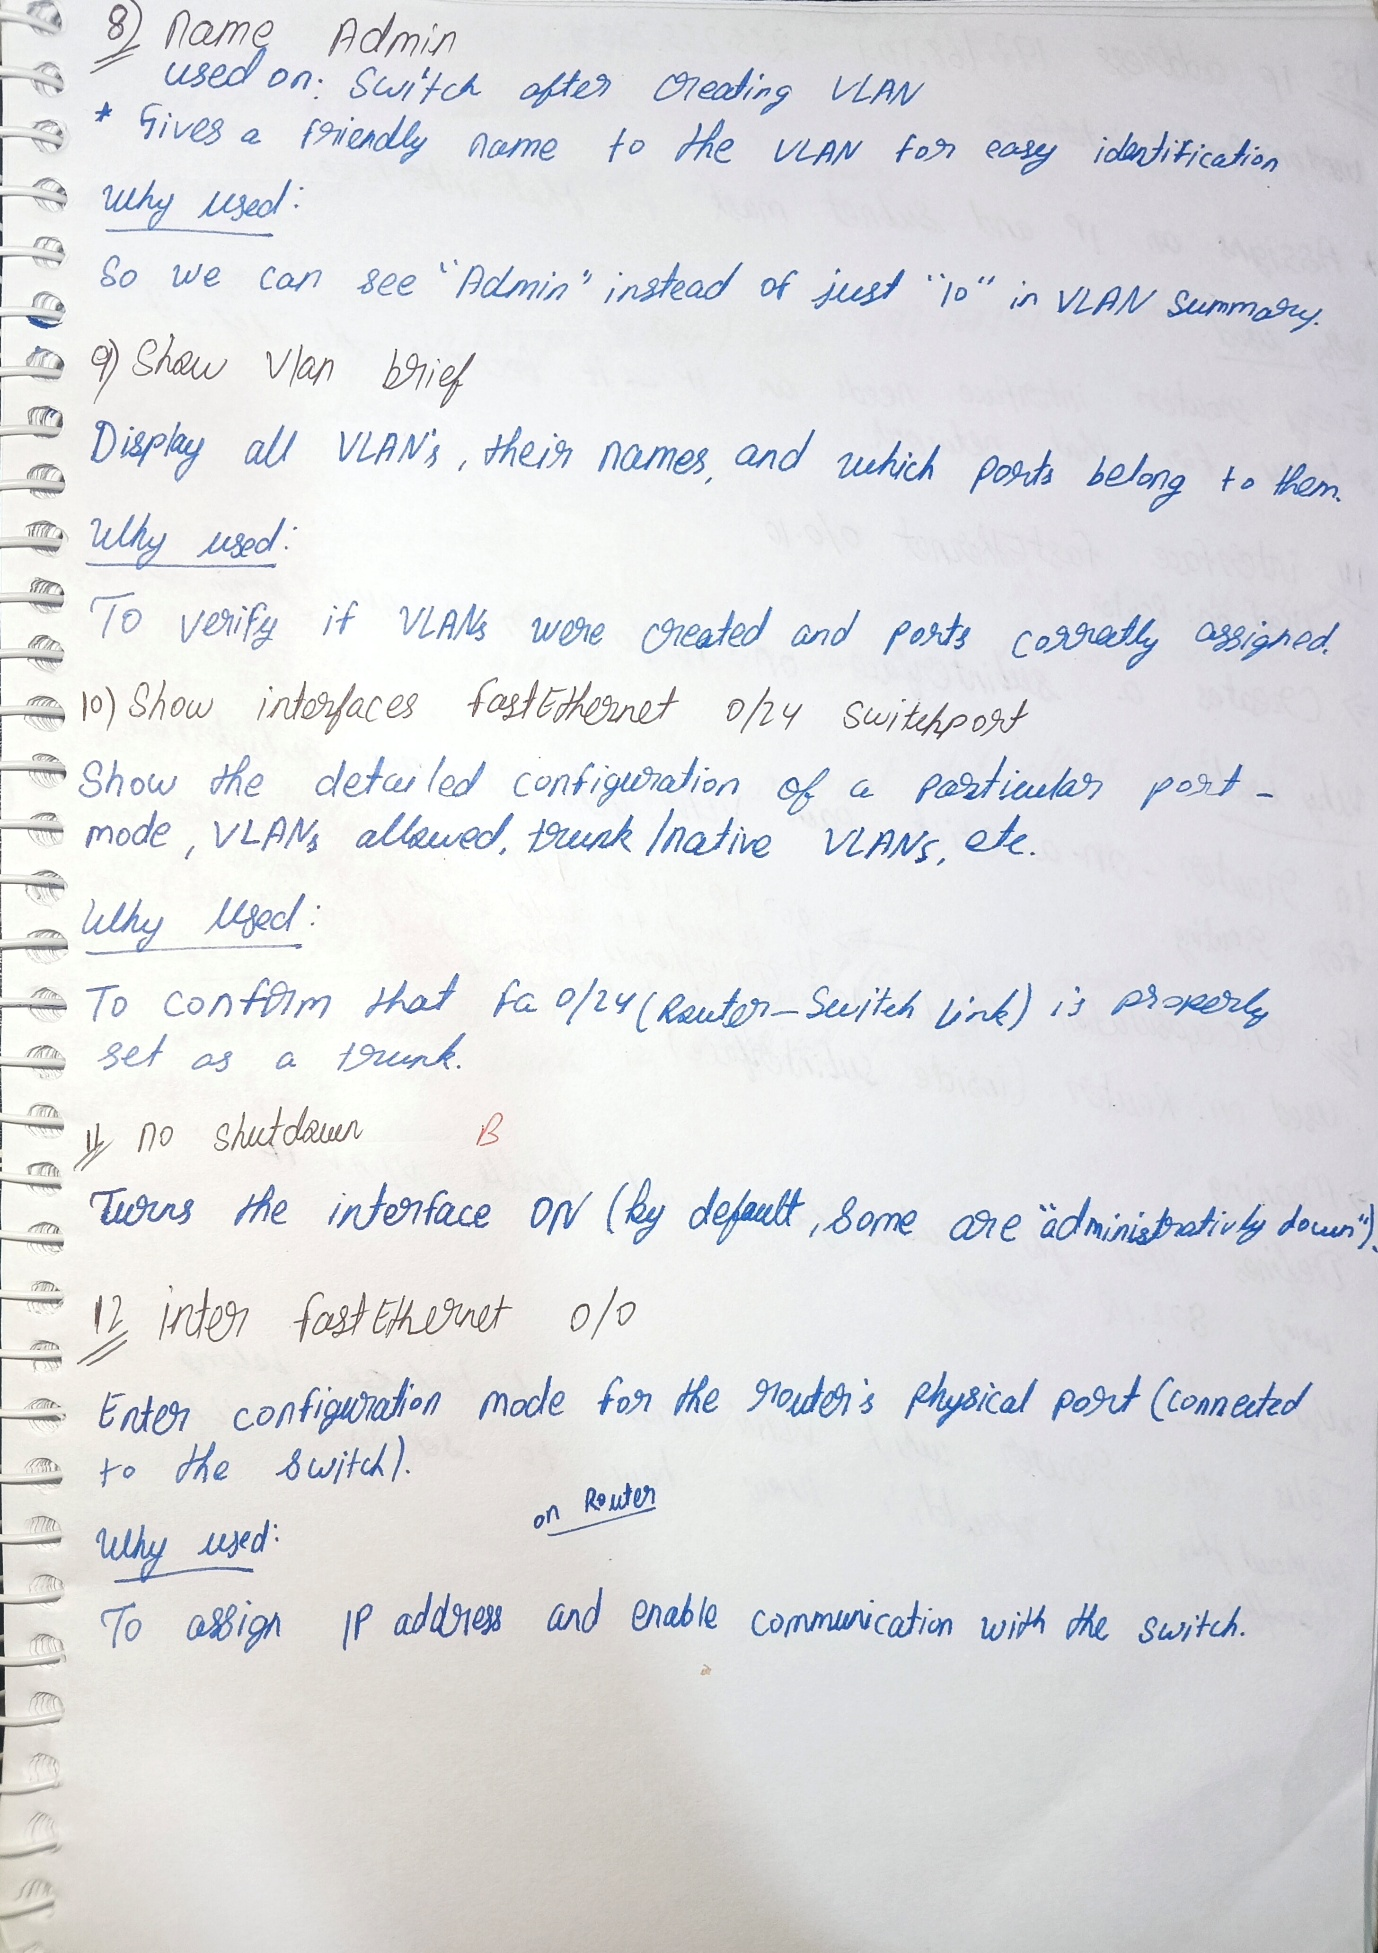 8) Name Admin
used on: Switch after creating VLAN
* Gives a friendly name to the VLAN for easy identification
Why used:
So we can see "Admin" instead of just "10" in VLAN Summary.
9) Show Vlan brief
Display all VLAN's, their names, and which ports belong to them.
Why used:
To verify if VLANs were created and ports correctly assigned.
10) Show interfaces fastEthernet 0/24 Switchport
Show the detailed configuration of a particular port -
mode, VLANs allowed, trunk/native VLANs, etc.
Why Used:
To confirm that fa 0/24 (Router-Switch Link) is properly
set as a trunk.
11 no shutdown B
Turns the interface ON (by default, some are "administrativly down").
12 inter fastEthernet 0/0
Enter configuration mode for the router's physical port (connected
to the switch).
on Router
Why used:
To assign IP address and enable communication with the switch.